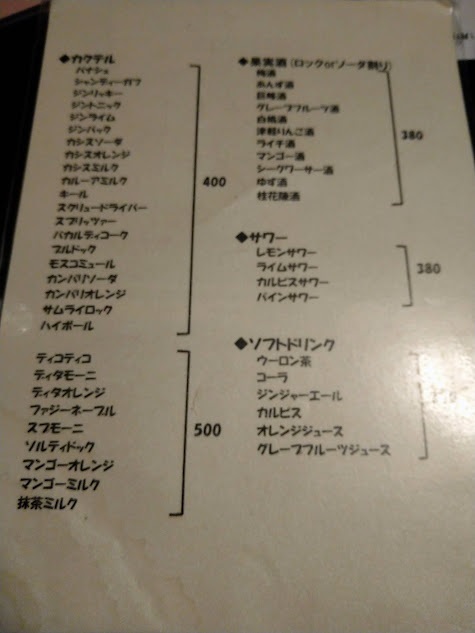 ◆カクテル
パナシェ
シャンディーガフ
ジンリッキー
ジントニック
ジンライム
ジンバック
カシスソーダ
カシスオレンジ
カシスミルク
カルーアミルク
キール
スクリュードライバー
スプリッツァー
バカルディコーク
ブルドック
モスコミュール
カンパリソーダ
カンパリオレンジ
サムライロック
ハイボール
400
ティコティコ
ディタモーニ
ディタオレンジ
ファジーネーブル
スプモーニ
ソルティドック
マンゴーオレンジ
マンゴーミルク
抹茶ミルク
500
◆果実酒(ロックorソーダ割り)
梅酒
あんず酒
巨峰酒
グレープフルーツ酒
白桃酒
津軽りんご酒
ライチ酒
マンゴー酒
シークワーサー酒
ゆず酒
桂花陳酒
380
◆サワー
レモンサワー
ライムサワー
カルピスサワー
パインサワー
380
◆ソフトドリンク
ウーロン茶
コーラ
ジンジャーエール
カルピス
オレンジジュース
グレープフルーツジュース